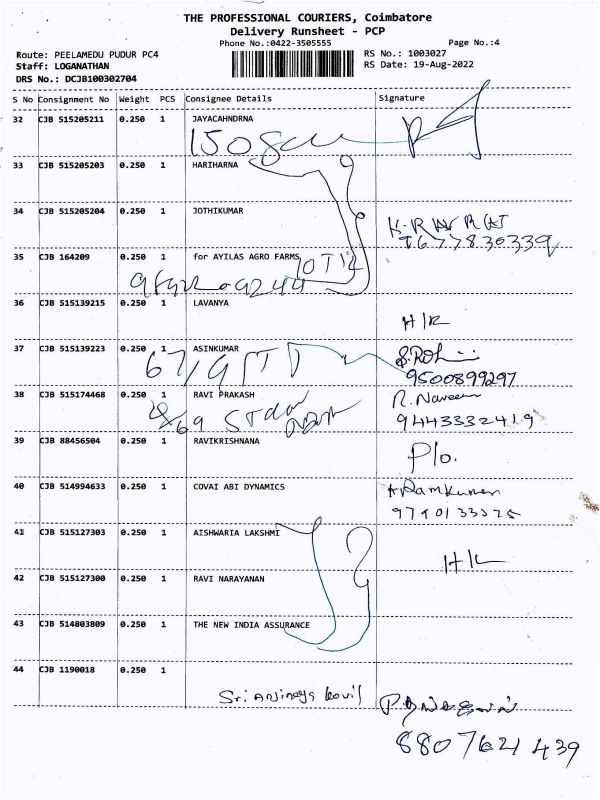 THE PROFESSIONAL COURIERS, Coimbatore
Delivery Runsheet - PCP
Phone No.:0422-3505555 Page No.:4
Route: PEELAMEDU PUDUR PC4 RS No.: 1003027
Staff: LOGANATHAN RS Date: 19-Aug-2022
DRS No.: DCJB100302704
S No Consignment No Weight PCS Consignee Details Signature
32 CJB 515205211 0.250 1 JAYACAHNDRNA
33 CJB 515205203 0.250 1 HARIHARNA
34 CJB 515205204 0.250 1 JOTHIKUMAR
9677830339
35 CJB 164209 0.250 1 for AYILAS AGRO FARMS
36 CJB 515139215 0.250 1 LAVANYA
H/K
37 CJB 515139223 0.250 1 ASINKUMAR
9500899297
38 CJB 515174468 0.250 1 RAVI PRAKASH R. Naveen
9443332419
39 CJB 88456504 0.250 1 RAVIKRISHNANA
P/o.
40 CJB 514994633 0.250 1 COVAI ABI DYNAMICS A Ramkumar
41 CJB 515127303 0.250 1 AISHWARIA LAKSHMI
H/K
42 CJB 515127300 0.250 1 RAVI NARAYANAN
43 CJB 514803809 0.250 1 THE NEW INDIA ASSURANCE
44 CJB 1190018 0.250 1
Sri Anjinaya kovil
8807621439